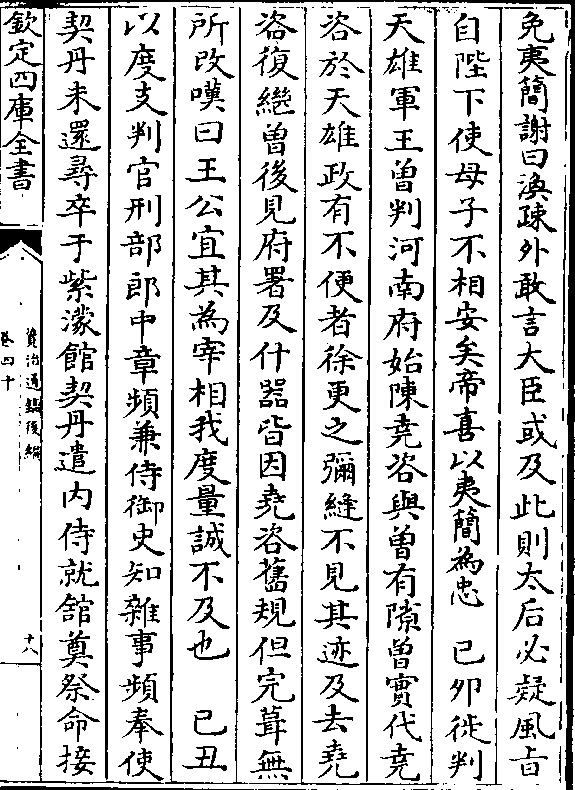 免夷簡謝曰渙疎外敢言大臣或及此則太后必疑風旨
自陛下使母子不相安矣帝喜以夷簡為忠　己卯徙判
天雄軍王曾判河南府始陳堯咨與曾有隙曾實代堯
咨於天雄政有不便者徐更之彌縫不見其迹及去堯
咨復繼曾後見府署及什器皆因堯咨舊規但完葺無
所改嘆曰王公宜其為宰相我度量誠不及也　己丑
以度支判官刑部郎中章頻兼侍御史知雜事頻奉使
契丹未還尋卒于紫濛館契丹遣内侍就舘奠祭命接
欽定四庫全書
資治通鑑後編
卷四十
十八